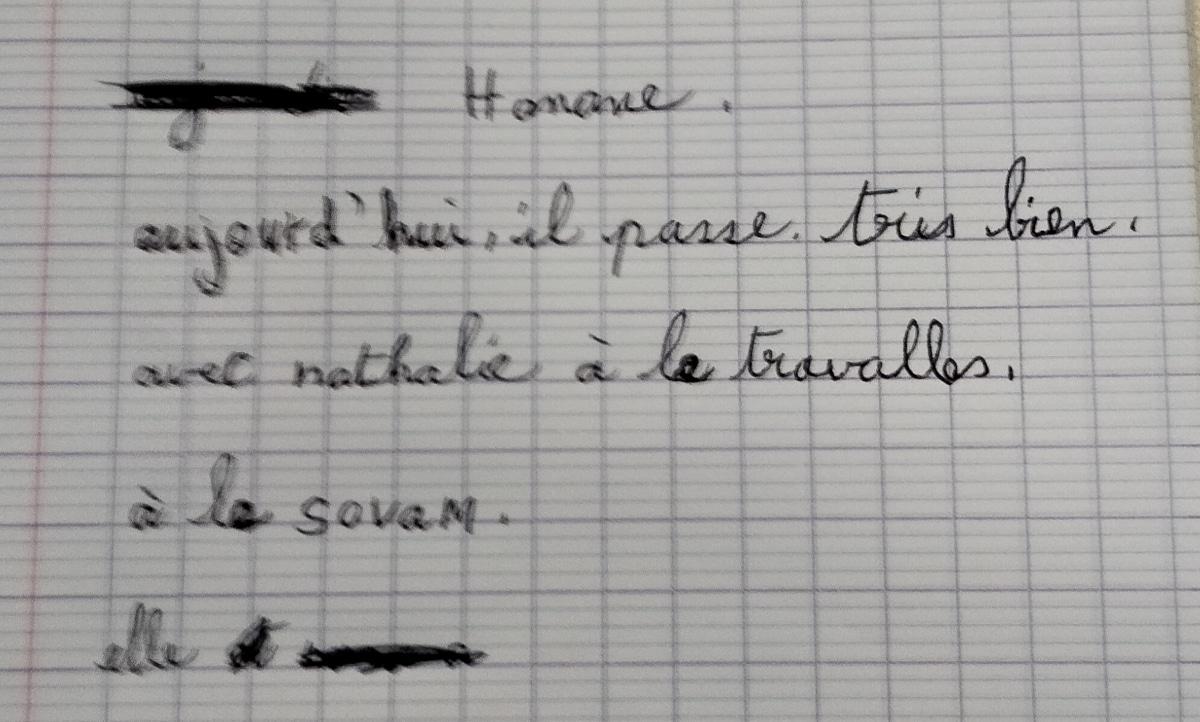 Honoane.
aujourd'hui, il passe. tris bien.
avec nathalie à le travalles.
à le sovam.
elle